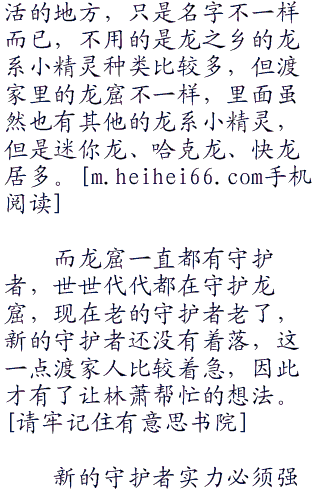 活的地方，只是名字不一样
而已，不用的是龙之乡的龙
系小精灵种类比较多，但渡
家里的龙窟不一样，里面虽
然也有其他的龙系小精灵，
但是迷你龙、哈克龙、快龙
居多。[m.heihei66.com手机
阅读]
而龙窟一直都有守护
者，世世代代都在守护龙
窟，现在老的守护者老了，
新的守护者还没有着落，这
一点渡家人比较着急，因此
才有了让林萧帮忙的想法。
[请牢记住有意思书院]
新的守护者实力必须强